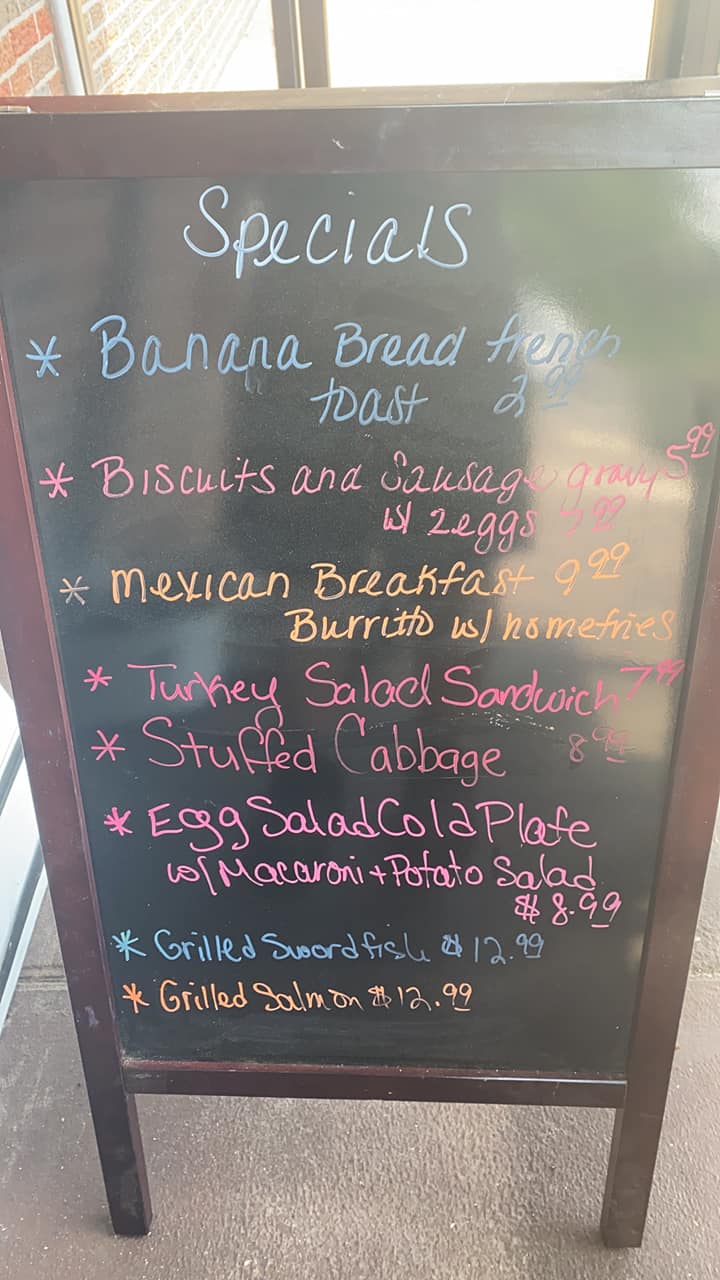 Specials
* Banana Bread french
toast 2.99
* Biscuits and Sausage gravy 5.99
w/ 2 eggs 7.99
* Mexican Breakfast 9.99
Burritto w/ homefries
* Turkey Salad Sandwich 7.99
* Stuffed Cabbage 8.99
* Egg Salad Cold Plate
w/ Macaroni + Potato Salad
$ 8.99
* Grilled Swordfish $12.99
* Grilled Salmon $12.99